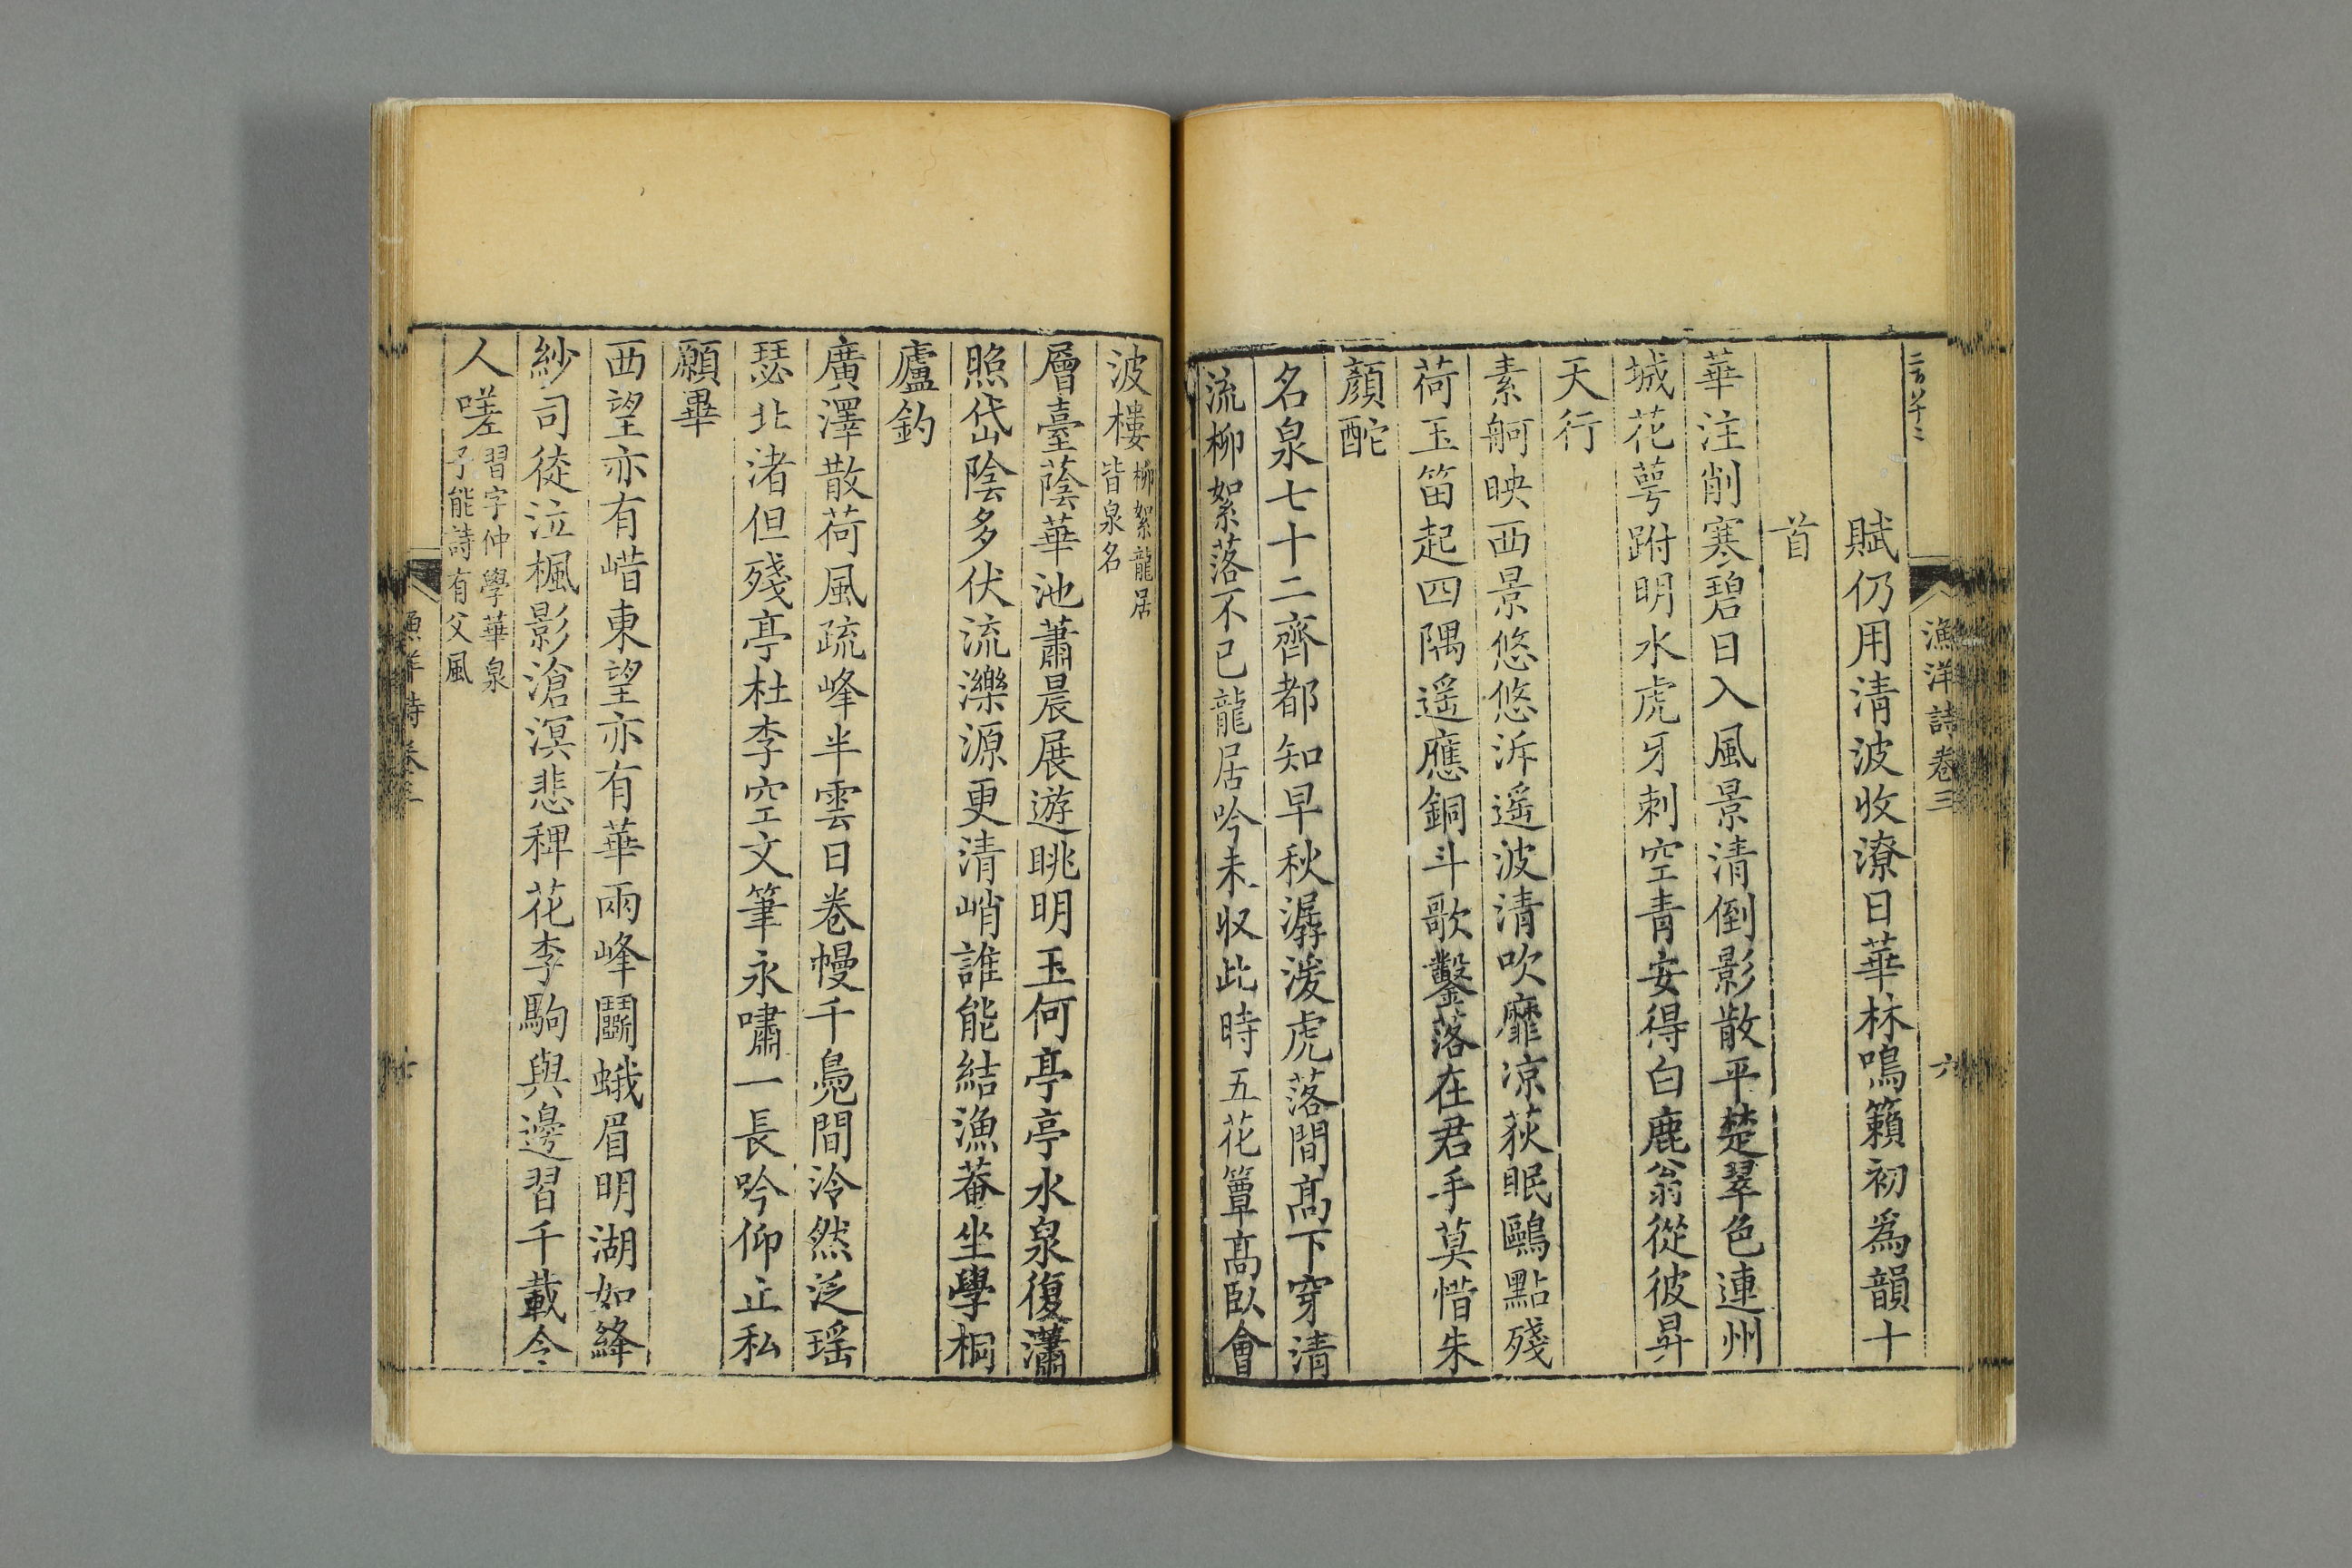 漁洋詩卷三
六
賦仍用清波收潦日華林鳴籟初爲韻十
首
華注削寒碧日入風景清倒影散平楚翠色連州
城花萼跗明水虎牙刺空青安得白鹿翁從彼昇
天行
素舸映西景悠悠泝遥波清吹靡凉荻眠鷗點殘
荷玉笛起四隅遥應銅斗歌鑿落在君手莫惜朱
顏酡
名泉七十二齊都知早秋潺湲虎落間髙下穿清
流柳絮落不已龍居吟未収此時五花簟髙臥會
波樓柳絮龍居皆泉名
層臺蔭華池蕭晨展遊眺明玉何亭亭水泉復瀟
照岱陰多伏流濼源更清峭誰能結漁菴坐學桐
廬釣
廣澤散荷風疏峰半雲日卷幔千鳬間泠然泛瑶
瑟北渚但殘亭杜李空文筆永嘯一長吟仰止私
願畢
西望亦有㟙東望亦有華兩峰鬭蛾眉明湖如絳
紗司徒泣楓影滄溟悲稗花李駒與邊習千載令
人嗟習字仲學華泉子能詩有父風
漁洋詩卷三